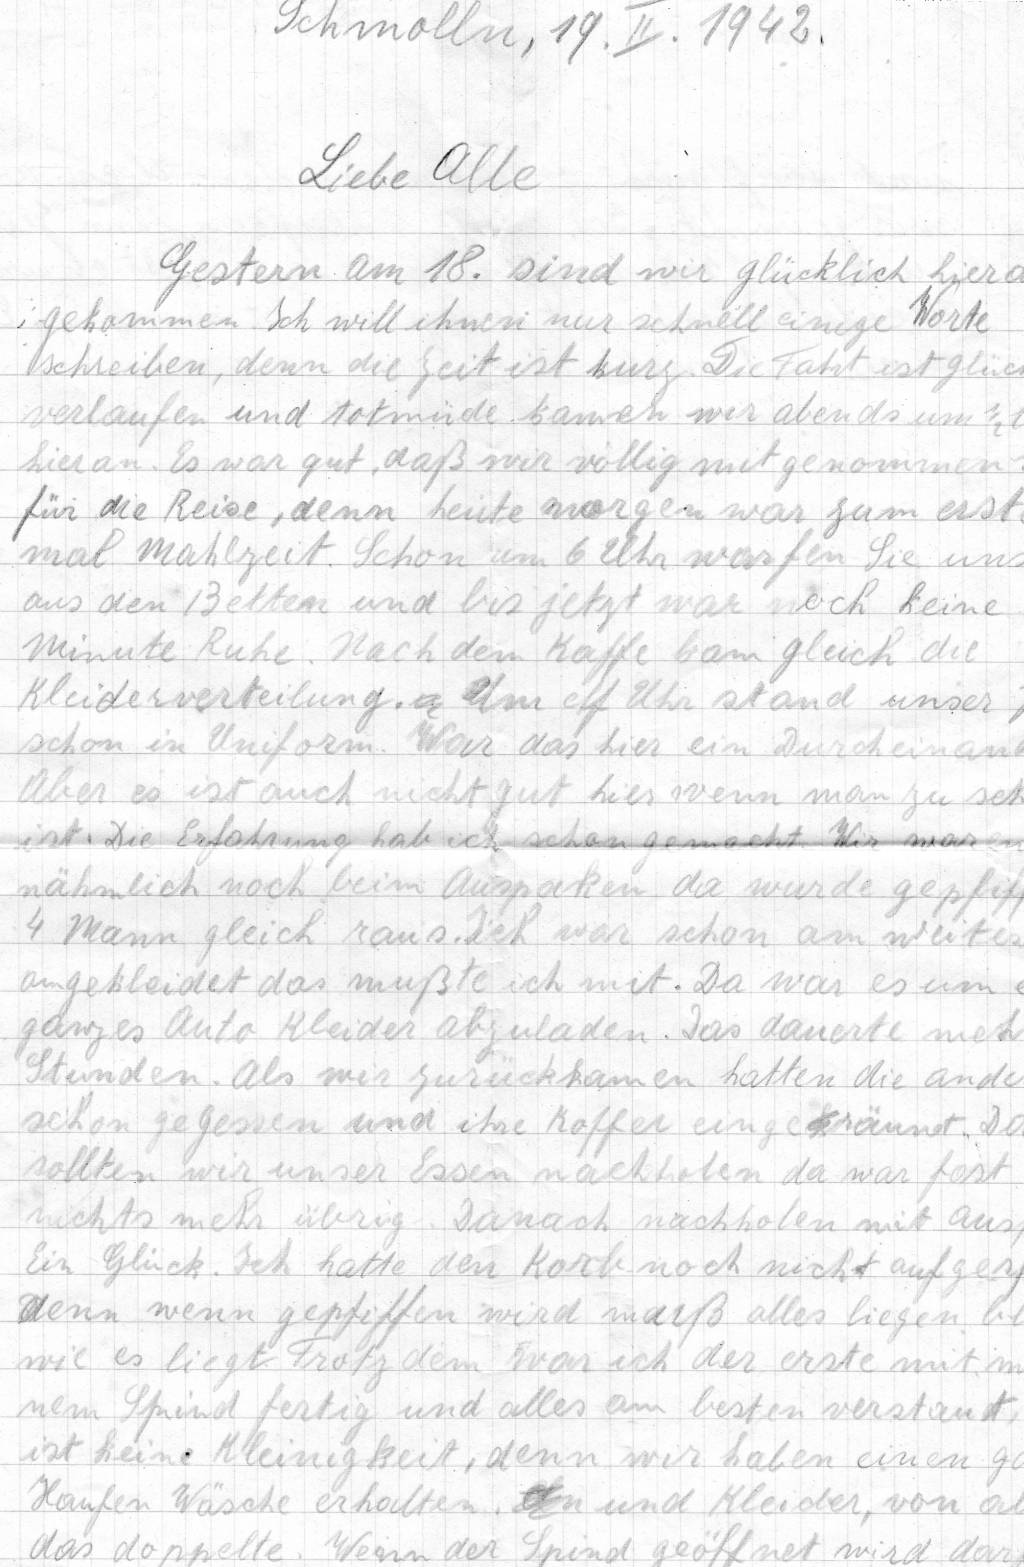 Schmolln, 19. II. 1942.
Liebe Alle
Gestern am 18. sind wir glücklich hiera
gekommen Ich will ihnen nur schnell einige Worte
schreiben, denn die Zeit ist kurz. Die Faht ist glück
verlaufen und totmüde kamen wir abends um
hier an. Es war gut, daß wir völlig mitgenommen
für die Reise, denn heute morgen war zum erst
mal Mahlzeit. Schon um 6 Uhr warfen Sie uns
aus den Betten und bis jetzt war noch keine
Minute Ruhe. Nach dem Kaffe kam gleich die
Kleiderverteilung. Um elf Uhr stand unser
schon in Uniform. War das hier ein Durcheinand
Aber es ist auch nicht gut hier wenn man zu sch
ist. Die Erfahrung hab ich schon gemacht. Wir waren
nähmlich noch beim Auspaken da wurde gepfiff
4 Mann gleich raus. Ich war schon am weites
angekleidet das mußte ich mit. Da war es um e
ganzes Auto Kleider abzuladen. Das dauerte meh
Stunden. Als wir zurückkamen hatten die ande
schon gegessen und ihre Koffer eingeräumt. Da
sollten wir unser Essen nachholen da war fast
nichts mehr übrig. Danach nachholen mit Ausp
Ein Glück. Ich hatte den Korb noch nicht aufger
denn wenn gepfiffen wird muß alles liegen bl
wie es liegt. Trotzdem war ich der erste mit m
nem Spind fertig und alles am besten verstaut,
ist keine Kleinigkeit, denn wir haben einen ga
Haufen Wäsche erhalten. und Kleider, von al
das doppelte. Wenn der Spind geöffnet wird dar